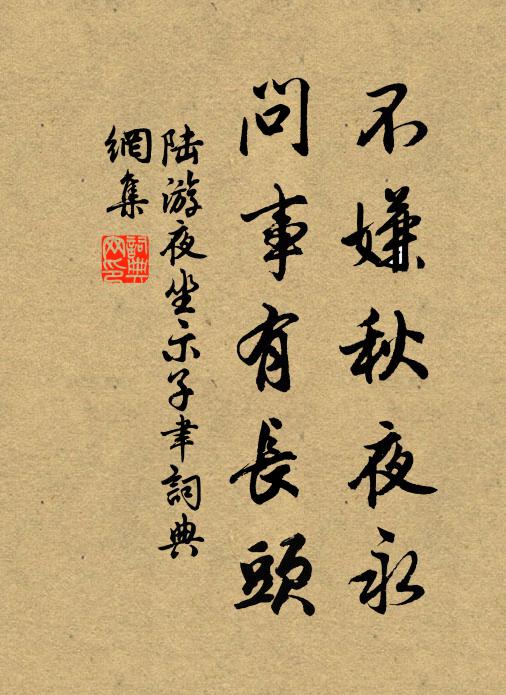 不嫌秋夜永
問事有長頭
陸游夜坐示子聿詞典
網集
詞典
网印